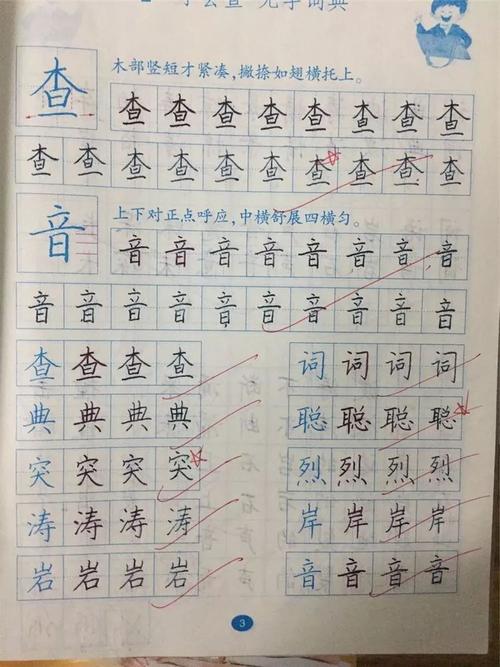 查
木部竖短才紧凑，撇捺如翅横托上。
查 查 查 查 查 查 查 查
查 查 查 查 查 查 查 查 查 查
音
上下对正点呼应，中横舒展四横匀。
音 音 音 音 音 音 音 音
音 音 音 音 音 音 音 音 音 音
查 查 查 查 词 词 词 词
典 典 典 典 聪 聪 聪 聪
突 突 突 突 烈 烈 烈 烈
涛 涛 涛 涛 岸 岸 岸 岸
岩 岩 岩 岩 音 音 音 音
3